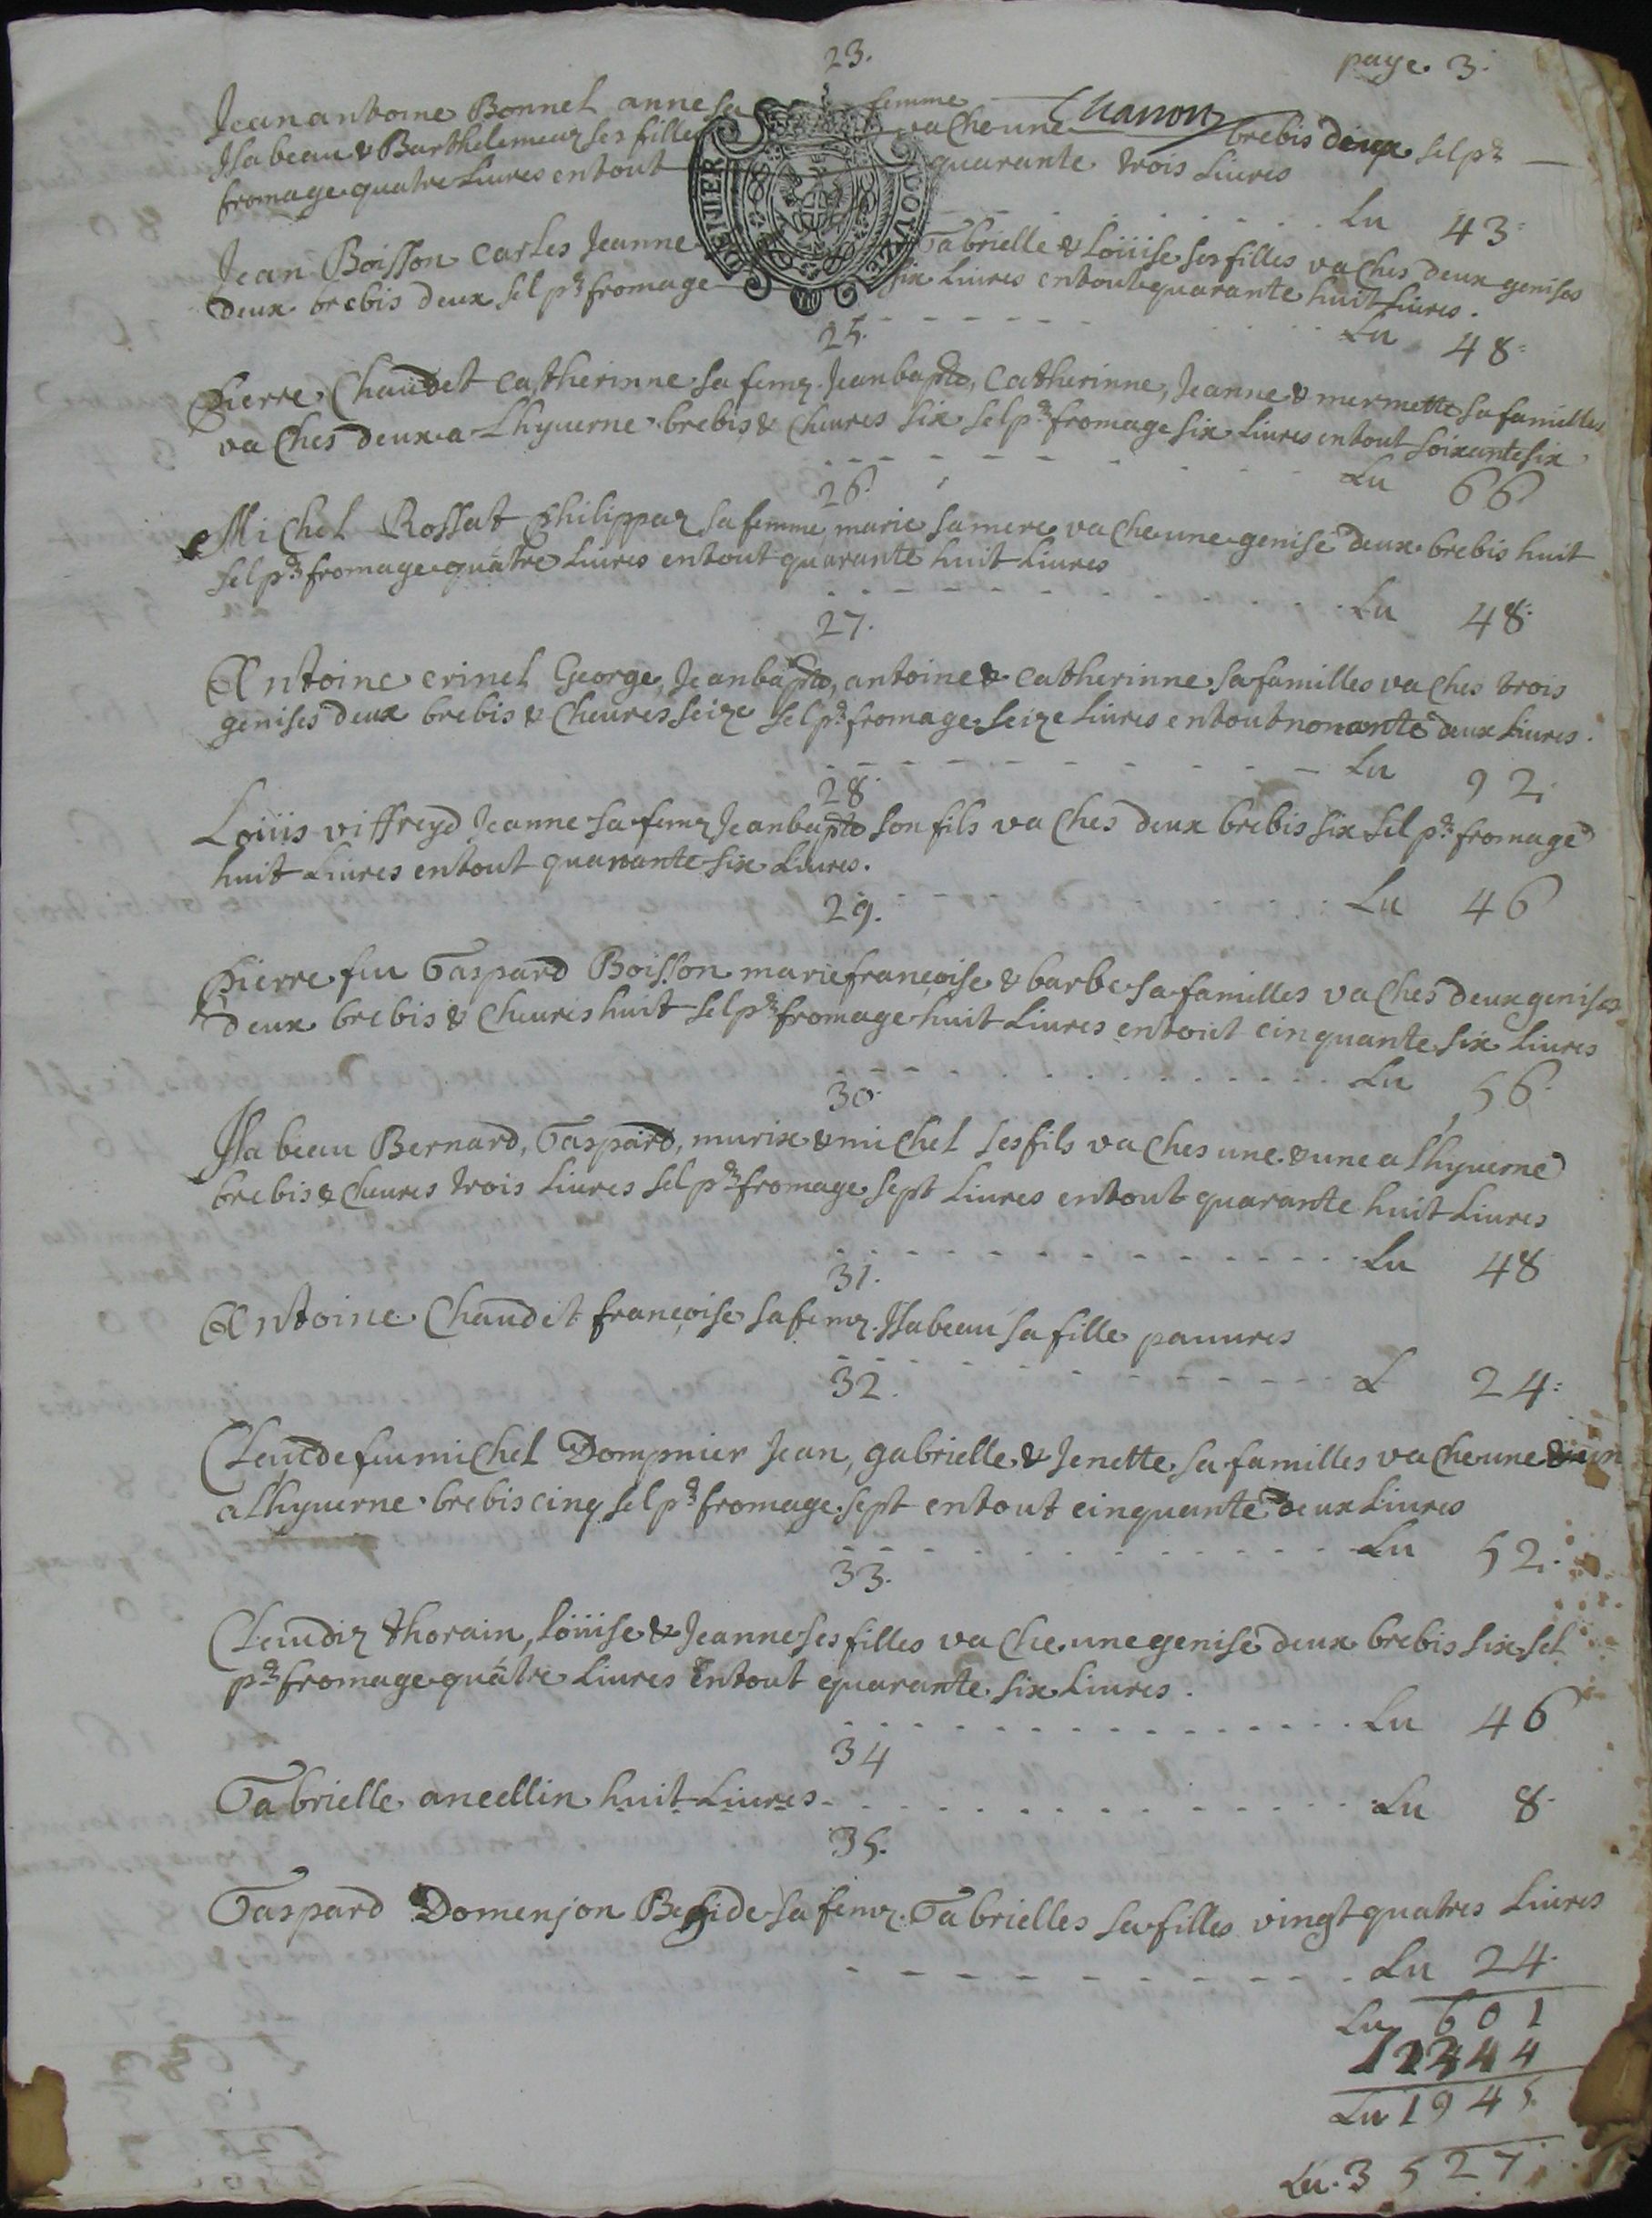 page. 3.
23.
Jean antoine Bonnel anne sa femme Chanon
Isabeau & Barthelemeaz ses filles vache une brebis deux sel pr
fromage quatre Liures entout quarante trois Liures
Lu 43
Jean Boisson Carles Jeanne Gabrielle & Loüise ses filles vaches deux genises
deux brebis deux sel pr fromage six Liures entout quarante huit Liures.
Lu 48
25.
Pierre Chaudet Catherinne sa femz Jeanbapte, Catherinne, Jeanne & mermette sa familles
vaches deux a Lhyuerne brebis & Cheures six sel pr fromage six Liures entout soixante six
Lu 66
26.
Michel Rossat Philippaz sa femme marie sa mere vache une genise deux brebis huit
sel pr fromage quatre Liures entout quarante huit Liures
Lu 48
27.
Antoine crinel George, Jeanbapte, antoine & Catherinne sa familles vaches trois
genises deux brebis & Cheures seize sel pr fromage seize Liures entout nonante deux Liures.
Lu 92
28
Loüis viffreyd Jeanne sa femz Jeanbapte son fils vaches deux brebis six sel pr fromage
huit Liures entout quarante six Liures.
Lu 46
29.
Pierre feu Gaspard Boisson marie françoise & barbe sa familles vaches deux genises
deux brebis & Cheures huit sel pr fromage huit Liures entout cinquante six Liures
Lu 56
30.
Isabeau Bernard, Gaspard, murix & michel ses fils vaches une & une a lhyuerne
brebis & Cheures trois Liures sel pr fromage sept Liures entout quarante huit Liures
Lu 48
31.
Antoine Chaudet françoise sa femz Isabeau sa fille pauures
L 24
32.
Claude feu michel Dompnier Jean, gabrielle & Jenette sa familles vache une & un
a lhyuerne brebis cinq sel pr fromage sept entout cinquante deux Liures
Lu 52
33.
Claudiz thorain, Loüise & Jeanne ses filles vache une genise deux brebis six sel
pr fromage quatre Liures entout quarante six Liures.
Lu 46
34
Gabrielle ancellin huit Liures
Lu 8
35.
Gaspard Domenjon sa femz Gabrielles sa filles vingt quatres Liures
Lu 24
Lu 601
1344
Lu 1945
Lu. 3527